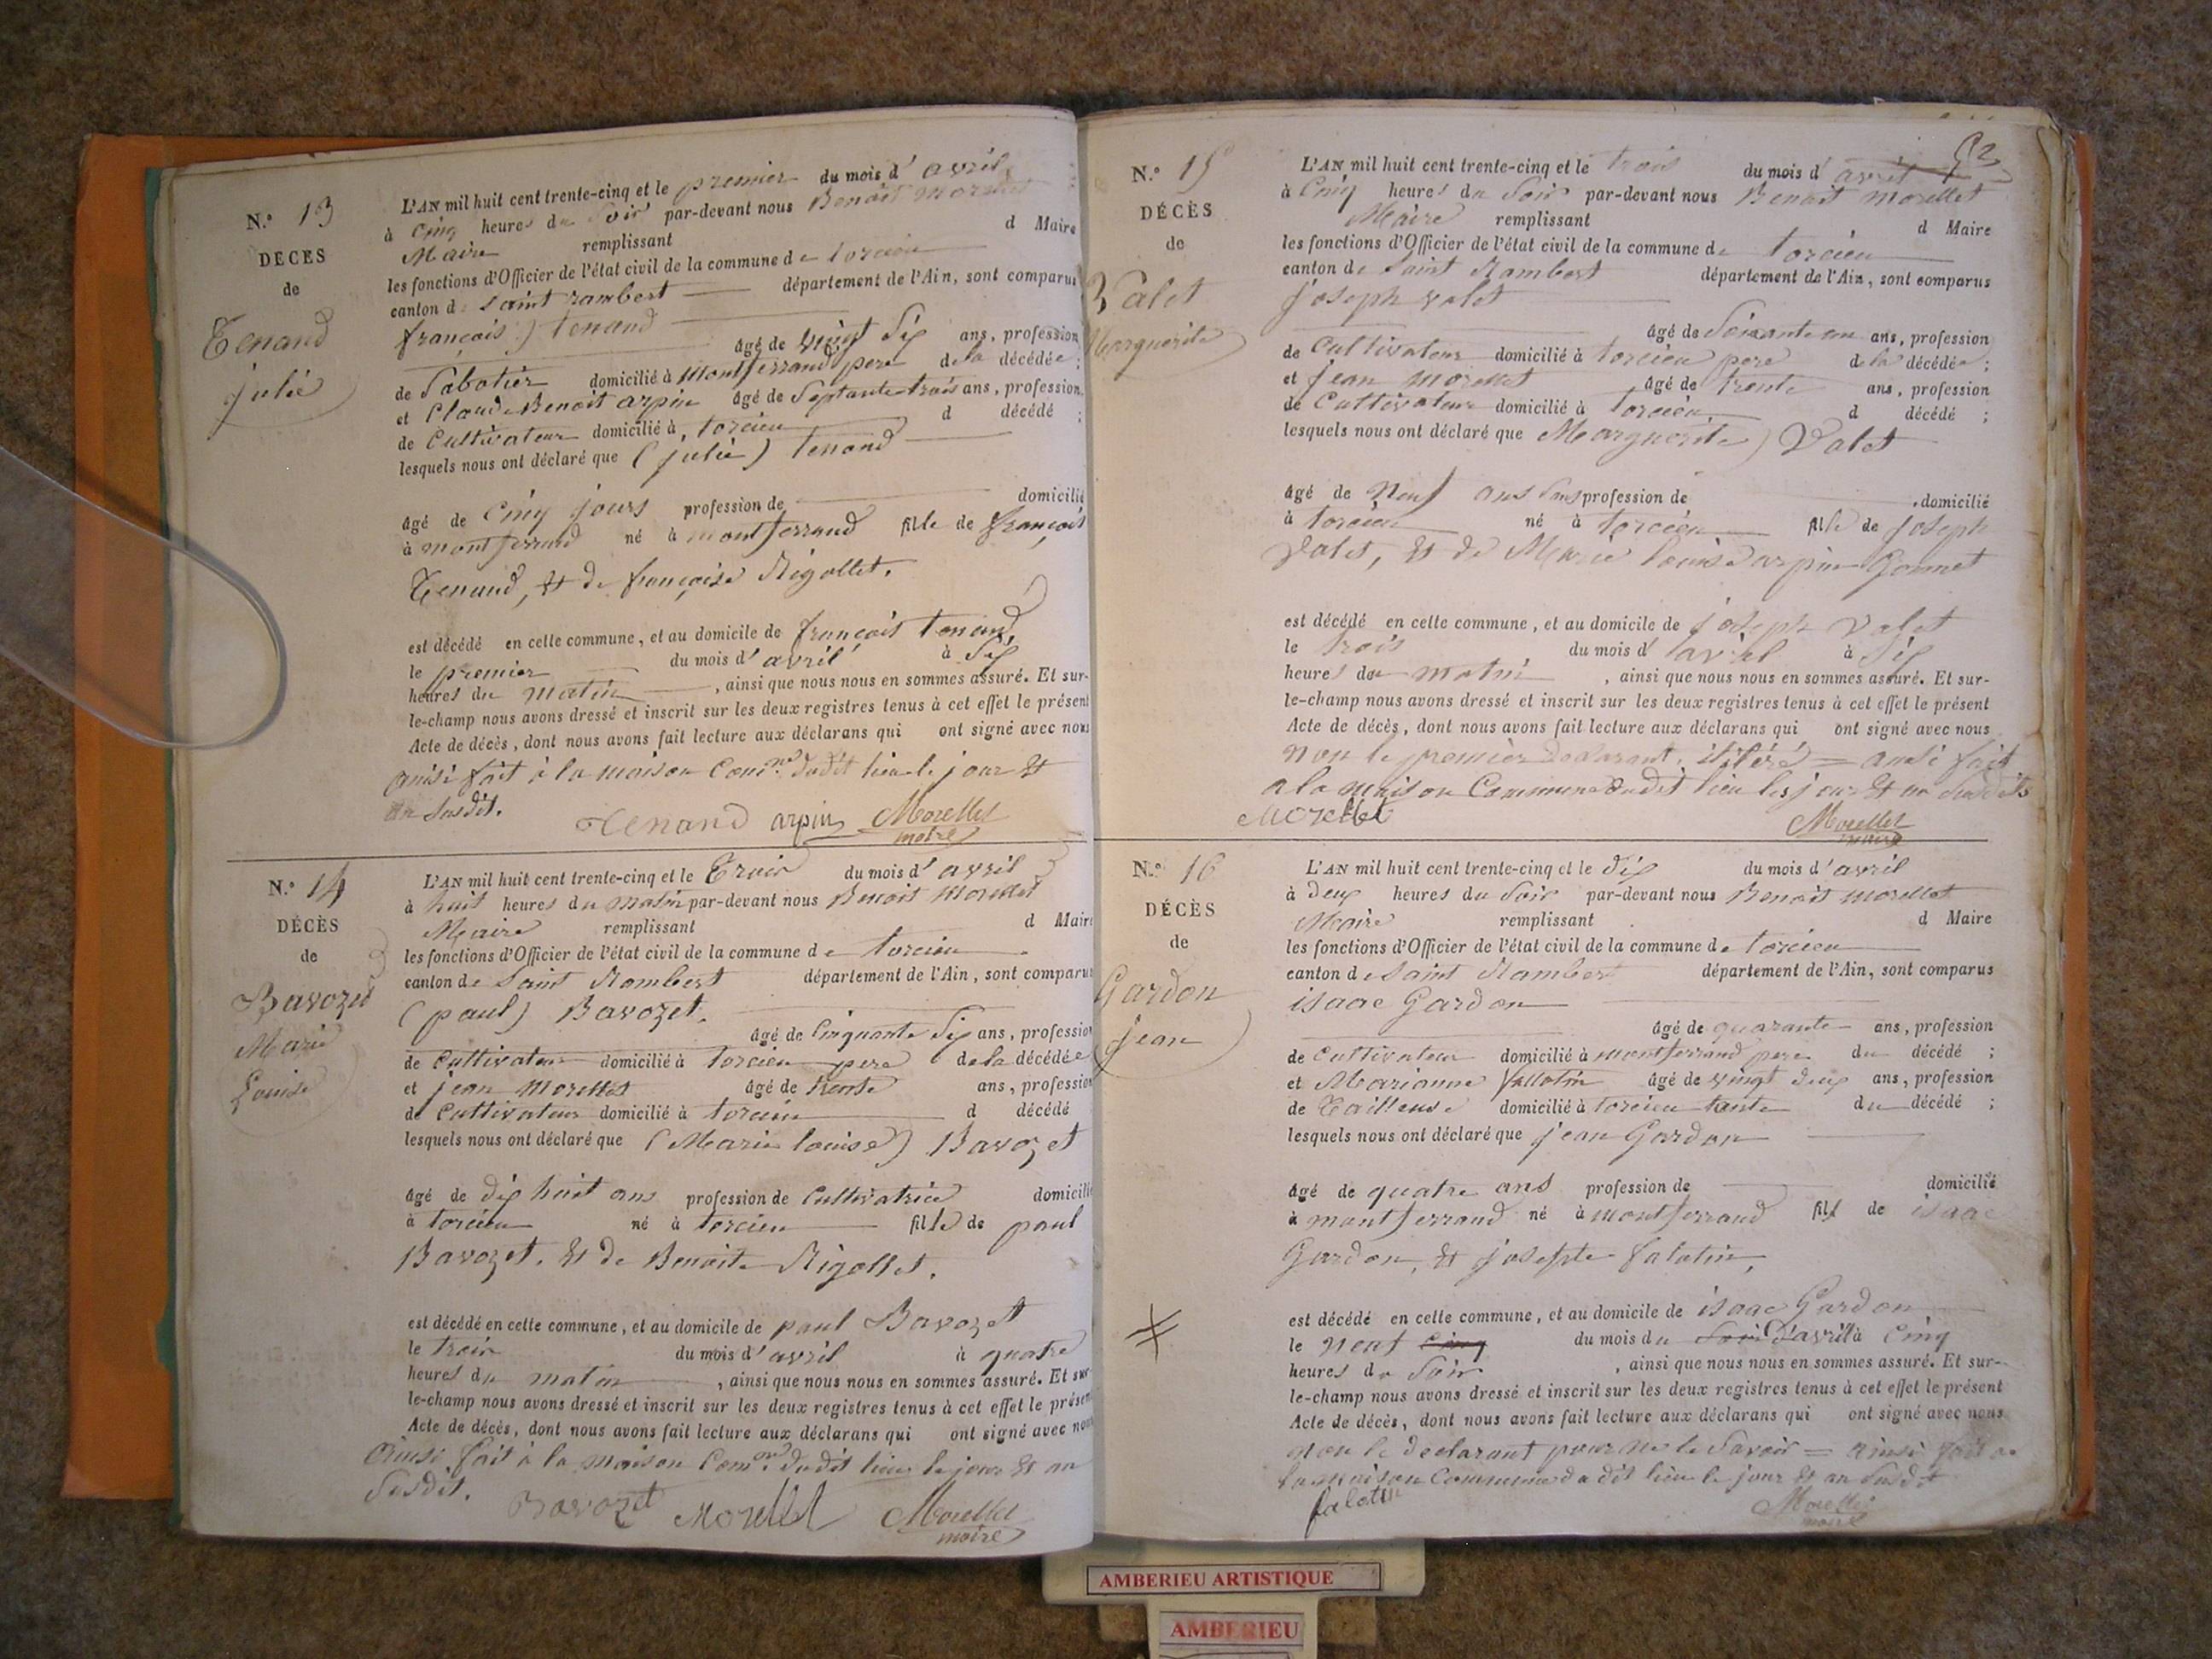 N.º 13
DÉCES
de
Tenand
julie
L'AN mil huit cent trente-cinq et le premier du mois d'avril
à Cinq heures du Soir par-devant nous Benoit Morellet
Maire remplissant d Maire
les fonctions d'Officier de l'état civil de la commune de torcieu
canton de Saint rambert département de l'Ain, sont comparus
françois) tenand
âgé de vingt Six ans, profession
de Sabotier domicilié à Montferrand pere de la décédée ;
et Claude Benoit arpin âgé de Septante trois ans, profession
de Cultivateur domicilié à torcieu d décédé ;
lesquels nous ont déclaré que (julie) tenand
âgé de Cinq jours profession de domicilié
à montferrand né à montferrand fille de françois
Tenand, et de françoise Rigollet.
est décédé en cette commune, et au domicile de françois tenand,
le premier du mois d'avril à Six
heures du matin, ainsi que nous nous en sommes assuré. Et sur-
le-champ nous avons dressé et inscrit sur les deux registres tenus à cet effet le présent
Acte de décès, dont nous avons fait lecture aux déclarans qui ont signé avec nous
ainsi fait à la maison Com.ne dudit lieu le jour et
an Susdit.
Tenand arpin Morellet
maire
N.º 14
DÉCÈS
de
Bavozet
Marie
Louise
L'AN mil huit cent trente-cinq et le Trois du mois d'avril
à huit heures du matin par-devant nous Benoit Morellet
Maire remplissant d Maire
les fonctions d'Officier de l'état civil de la commune de torcieu
canton de Saint Rambert département de l'Ain, sont comparus
(paul) Bavozet.
âgé de Cinquante Six ans, profession
de Cultivateur domicilié à torcieu pere de la décédée
et jean Morellet âgé de trente ans, profession
de Cultivateur domicilié à torcieu d décédé
lesquels nous ont déclaré que (Marie louise) Bavozet
âgé de dix huit ans profession de Cultivatrice domicilié
à torcieu né à torcieu fille de paul
Bavozet. et de Benoite Rigollet.
est décédé en cette commune, et au domicile de paul Bavozet
le trois du mois d'avril à quatre
heures du matin, ainsi que nous nous en sommes assuré. Et sur
le-champ nous avons dressé et inscrit sur les deux registres tenus à cet effet le présent
Acte de décès, dont nous avons fait lecture aux déclarans qui ont signé avec nous
Ainsi fait à la maison Com.ne dudit lieu le jour et an
Susdit. Bavozet Morellet Morellet
maire
N.º 15
DÉCÈS
de
Valet
Marguerite
L'AN mil huit cent trente-cinq et le trois du mois d'avril
à Cinq heures du Soir par-devant nous Benoit Morellet
Maire remplissant d Maire
les fonctions d'Officier de l'état civil de la commune de torcieu
canton de Saint Rambert département de l'Ain, sont comparus
joseph valet
âgé de Soixante un ans, profession
de Cultivateur domicilié à torcieu pere de la décédée ;
et jean Morellet âgé de trente ans, profession
de Cultivateur domicilié à torcieu d décédé ;
lesquels nous ont déclaré que Marguerite) Valet
âgé de Neuf ans Sans profession de domicilié
à torcieu né à torcieu fille de joseph
Valet, et de Marie louise arpin Gonnet
est décédé en cette commune, et au domicile de joseph valet
le trois du mois d'avril à Six
heures du matin, ainsi que nous nous en sommes assuré. Et sur-
le-champ nous avons dressé et inscrit sur les deux registres tenus à cet effet le présent
Acte de décès, dont nous avons fait lecture aux déclarans qui ont signé avec nous
non le premier Declarant, = ainsi fait
a la maison Commune dudit lieu les jour et an Susdits
Morellet Morellet
maire
N.º 16
DÉCÈS
de
Gardon
jean
L'AN mil huit cent trente-cinq et le dix du mois d'avril
à deux heures du Soir par-devant nous Benoit Morellet
Maire remplissant d Maire
les fonctions d'Officier de l'état civil de la commune de torcieu
canton de Saint Rambert département de l'Ain, sont comparus
isaac Gardon
âgé de quarante ans, profession
de Cultivateur domicilié à montferrand pere du décédé ;
et Marianne fallatin âgé de vingt deux ans, profession
de Tailleuse domicilié à torcieu tante du décédé ;
lesquels nous ont déclaré que jean Gardon
âgé de quatre ans profession de domicilié
à montferrand né à montferrand fils de isaac
Gardon, et josephte falatin,
est décédé en cette commune, et au domicile de isaac Gardon
le neuf cinq du mois du Soir d'avril à Cinq
heures du Soir, ainsi que nous nous en sommes assuré. Et sur-
le-champ nous avons dressé et inscrit sur les deux registres tenus à cet effet le présent
Acte de décès, dont nous avons fait lecture aux déclarans qui ont signé avec nous
non le declarant pour ne le Savoir = ainsi fait a
la maison Commune du dit lieu le jour et an Susdit
falatin Morellet
maire
AMBERIEU ARTISTIQUE
AMBERIEU